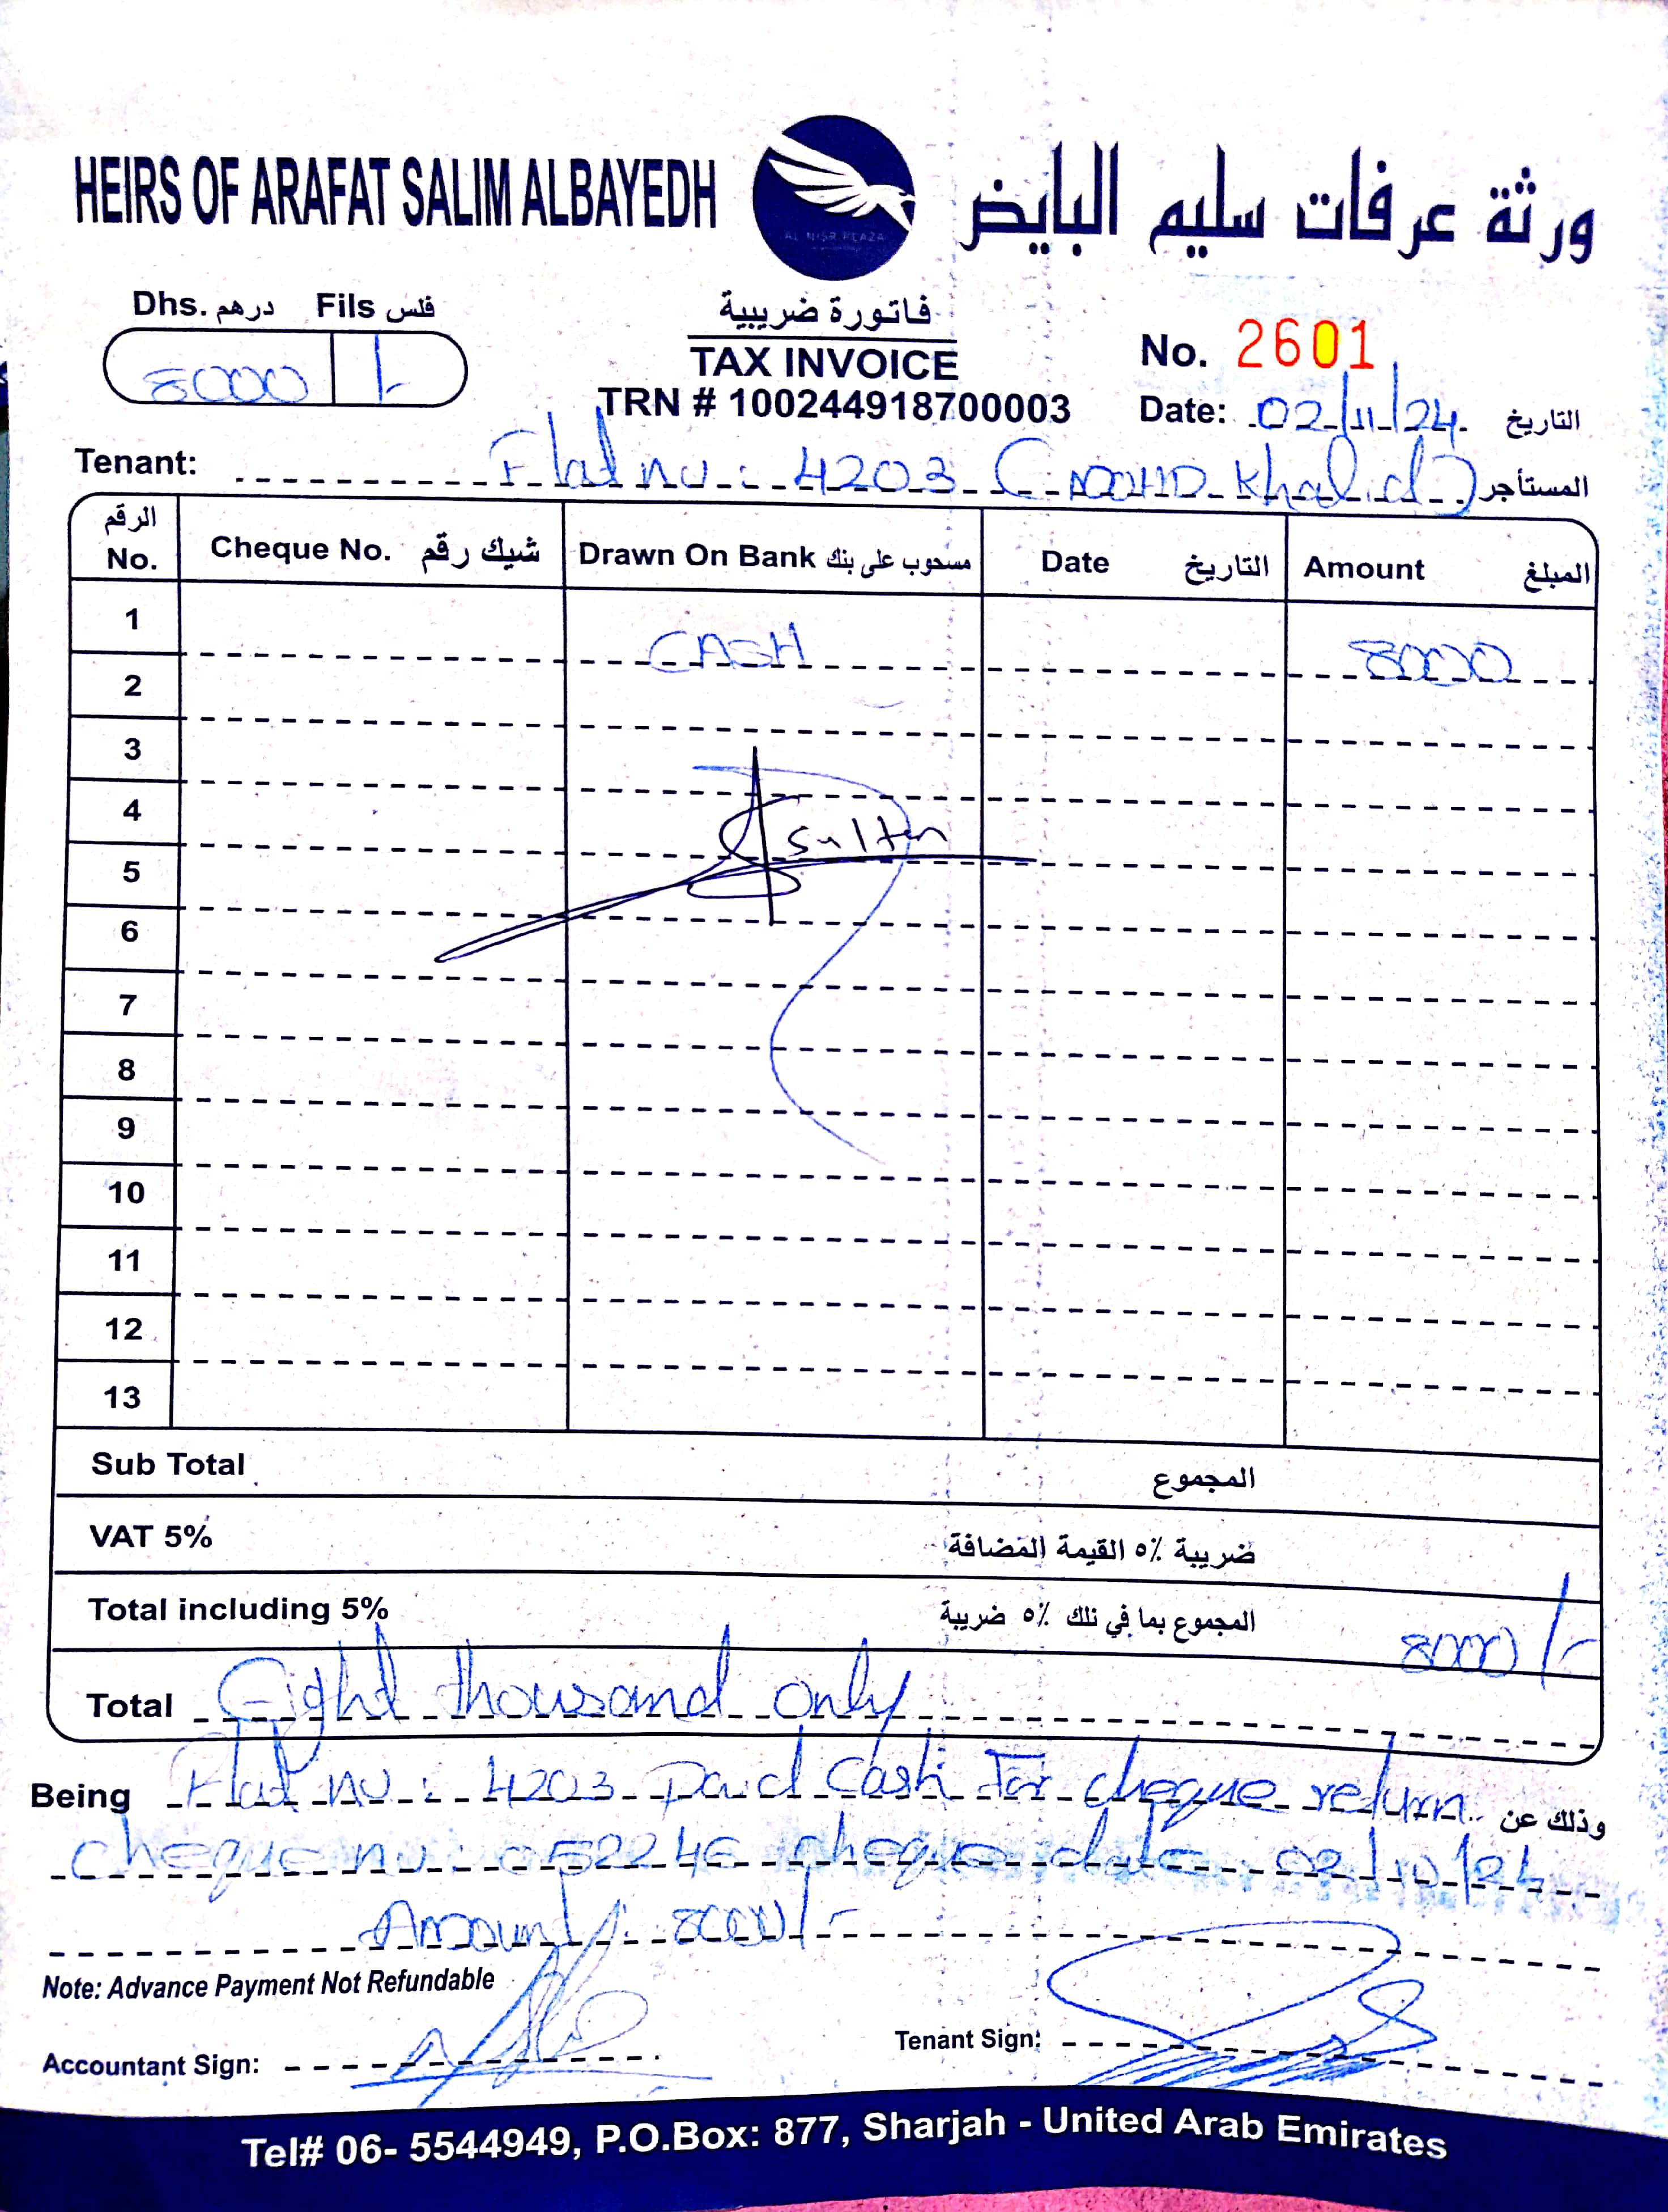 HEIRS OF ARAFAT SALIM ALBAYEDH
AL NISR PLAZA
ورثة عرفات سليم البايض
Dhs. درهم Fils فلس
8000 /-
فاتورة ضريبية
TAX INVOICE
TRN # 100244918700003
No. 2601
Date: 02/11/24 التاريخ
Tenant: Flat no: 4203 (MOHD Khalid) المستأجر
الرقم No. Cheque No. شيك رقم Drawn On Bank مسحوب على بنك Date التاريخ Amount المبلغ
1 CASH 8000
2
3
4 Sultan
5
6
7
8
9
10
11
12
13
Sub Total المجموع
VAT 5% ضريبة ٥٪ القيمة المضافة
Total including 5% المجموع بما في تلك ٥٪ ضريبة 8000/-
Total Eight thousand only
Being Flat no: 4203 Paid Cash For cheque return وذلك عن
cheque no: 052246 cheque date: 02/10/24
Amount: 8000/-
Note: Advance Payment Not Refundable
Accountant Sign:
Tenant Sign:
Tel# 06- 5544949, P.O.Box: 877, Sharjah - United Arab Emirates